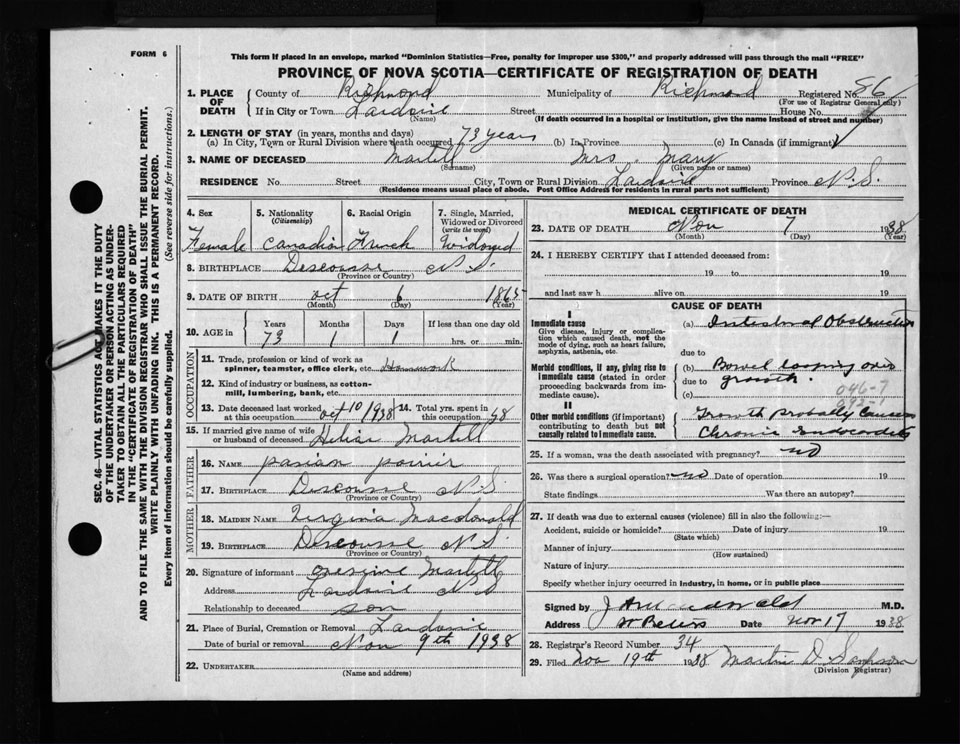 FORM 6
This form if placed in an envelope, marked "Dominion Statistics—Free, penalty for improper use $300," and properly addressed will pass through the mail "FREE"
PROVINCE OF NOVA SCOTIA—CERTIFICATE OF REGISTRATION OF DEATH
SEC. 46—VITAL STATISTICS ACT MAKES IT THE DUTY
OF THE UNDERTAKER OR PERSON ACTING AS UNDER-
TAKER TO OBTAIN ALL THE PARTICULARS REQUIRED
IN THE "CERTIFICATE OF REGISTRATION OF DEATH"
AND TO FILE THE SAME WITH THE DIVISION REGISTRAR WHO SHALL ISSUE THE BURIAL PERMIT.
WRITE PLAINLY WITH UNFADING INK. THIS IS A PERMANENT RECORD.
Every item of information should be carefully supplied. (See reverse side for instructions.)
1. PLACE OF DEATH
County of Richmond Municipality of Richmond Registered No. 86
(For use of Registrar General only)
If in City or Town Street House No.
(Name) (If death occurred in a hospital or institution, give the name instead of street and number)
2. LENGTH OF STAY (in years, months and days)
(a) In City, Town or Rural Division where death occurred 73 years (b) In Province (c) In Canada (if immigrant)
3. NAME OF DECEASED Martell Mrs. Mary
(Surname) (Given name or names)
RESIDENCE No. Street City, Town or Rural Division Province N.S.
(Residence means usual place of abode. Post Office Address for residents in rural parts not sufficient)
4. Sex
Female
5. Nationality
(Citizenship)
Canadian
6. Racial Origin
French
7. Single, Married,
Widowed or Divorced
(write the word)
Widowed
8. BIRTHPLACE Descousse N.S.
(Province or Country)
9. DATE OF BIRTH Oct 6 1865
(Month) (Day) (Year)
10. AGE in
Years Months Days If less than one day old
73 1 1 hrs. or min.
OCCUPATION
11. Trade, profession or kind of work as
spinner, teamster, office clerk, etc. Housework
12. Kind of industry or business, as cotton-
mill, lumbering, bank, etc.
13. Date deceased last worked
at this occupation Oct 10/938
14. Total yrs. spent in
this occupation 58
15. If married give name of wife
or husband of deceased Martell
FATHER
16. NAME
17. BIRTHPLACE Descousse N.S.
(Province or Country)
MOTHER
18. MAIDEN NAME Virginia Macdonald
19. BIRTHPLACE Descousse N.S.
(Province or Country)
20. Signature of informant Martell
Address N S
Relationship to deceased son
21. Place of Burial, Cremation or Removal
Date of burial or removal Nov 9th 1938
22. UNDERTAKER
(Name and address)
MEDICAL CERTIFICATE OF DEATH
23. DATE OF DEATH Nov 7 1938
(Month) (Day) (Year)
24. I HEREBY CERTIFY that I attended deceased from:
19 to 19
and last saw h alive on 19
CAUSE OF DEATH
I
Immediate cause
Give disease, injury or complica-
tion which caused death, not the
mode of dying, such as heart failure,
asphyxia, asthenia, etc.
(a) Intestinal Obstruction
due to
Morbid conditions, if any, giving rise to
immediate cause (stated in order
proceeding backwards from im-
mediate cause).
(b) Bowel looping over
due to growth.
(c) 046-7
II
Other morbid conditions (if important)
contributing to death but not
causally related to immediate cause.
Growth probably Cancer
Chronic Endocarditis
25. If a woman, was the death associated with pregnancy? no
26. Was there a surgical operation? no Date of operation 19
State findings Was there an autopsy?
27. If death was due to external causes (violence) fill in also the following:—
Accident, suicide or homicide? Date of injury 19
(State which)
Manner of injury
(How sustained)
Nature of injury
Specify whether injury occurred in industry, in home, or in public place
Signed by M.D.
Address St Peters Date Nov 17 1938
28. Registrar's Record Number 34
29. Filed Nov 19th 1938 Martin D. Sampson
(Division Registrar)